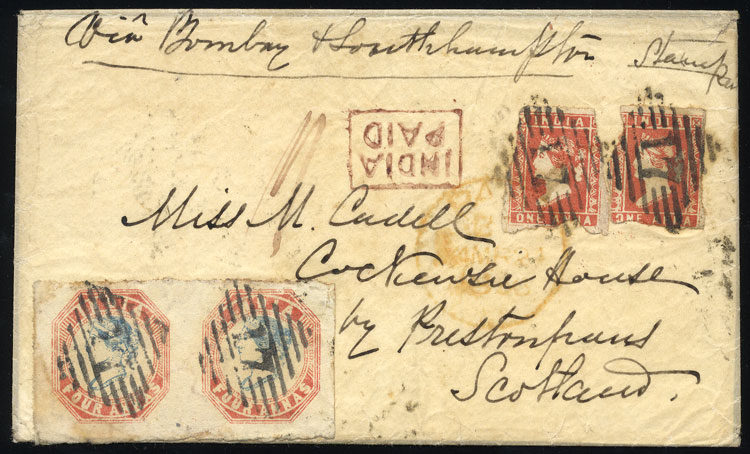 Via Bombay & Southhampton
INDIA
PAID
INDIA
ONE
A
INDIA
ONE
A
Miss M. Cadell
Cockenzie House
by Prestonpans
Scotland.
FOUR ANNAS
FOUR ANNAS